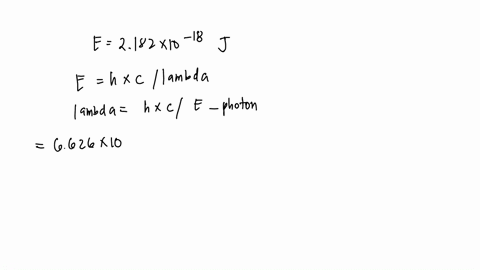 E = 2.182 × 10⁻¹⁸ J
E = h × c / lambda
lambda = h × c / E - photon
= 6.626 × 10